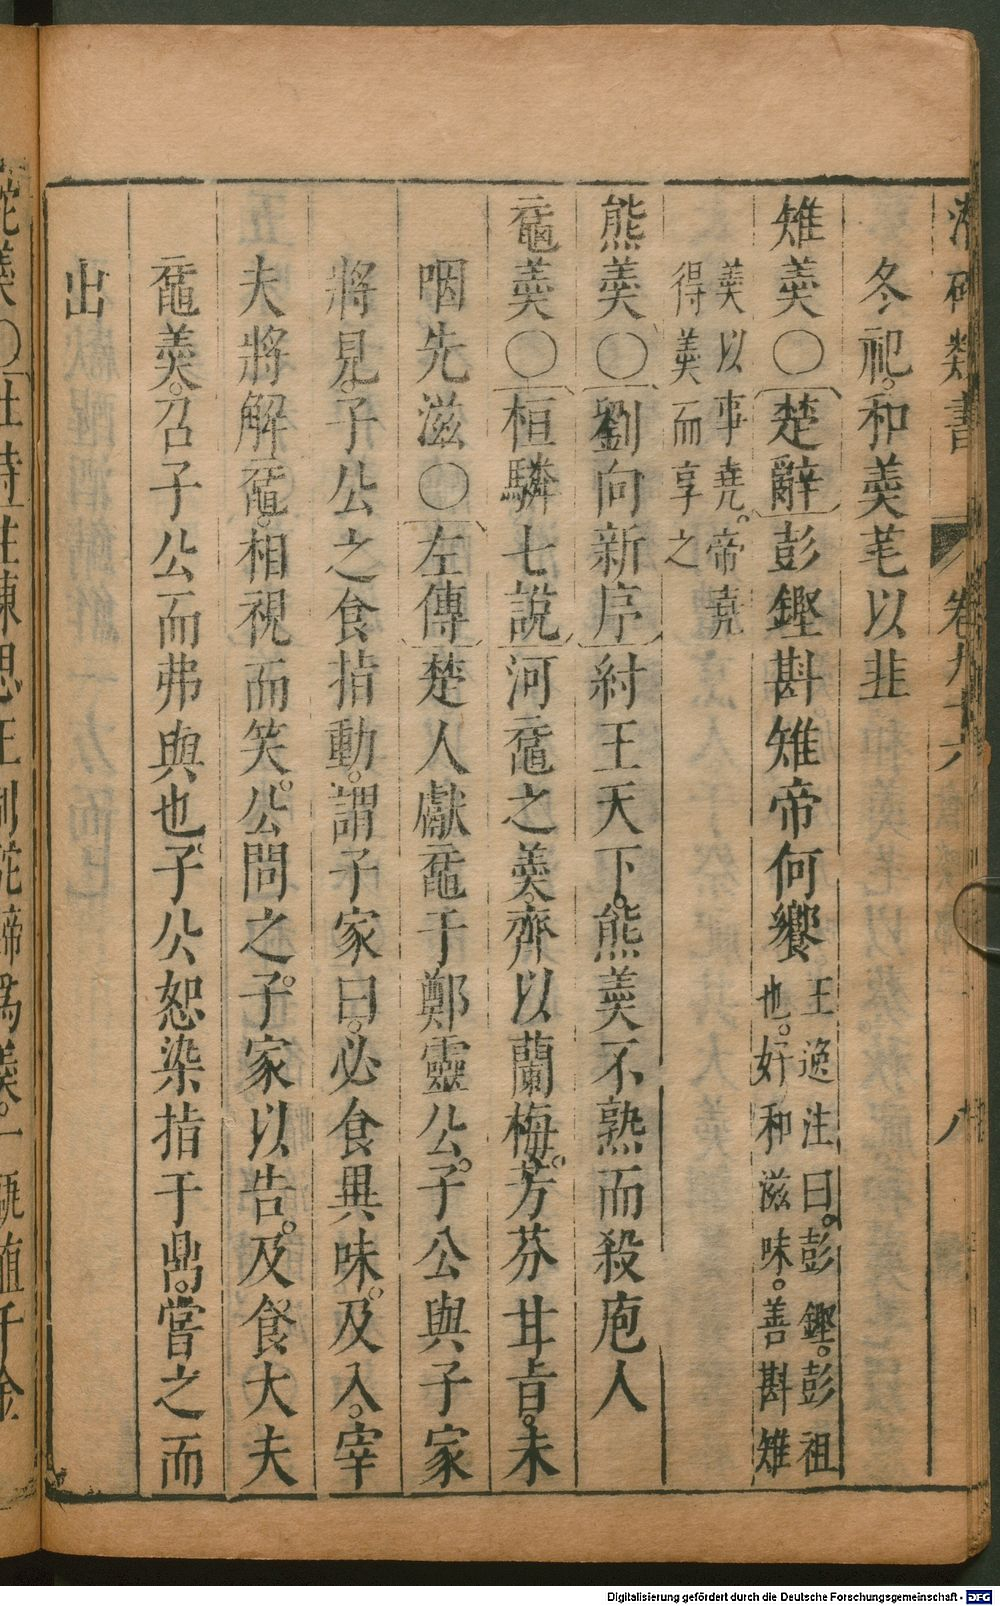 冬祀。和羹芼以韭
雉羹〇楚辭彭鏗斟雉帝何饗王逸注曰。彭鏗。彭祖
也。好和滋味。善斟雉
羹以事堯。帝堯
得羹而享之
熊羹〇劉向新序紂王天下。熊羹不熟而殺庖人
黿羹〇桓驎七說河黿之羹。齊以蘭梅。芳芬甘旨。未
咽先滋〇左傳楚人獻黿于鄭靈公。子公與子家
將見。子公之食指動。謂子家曰。必食異味。及入。宰
夫將解黿。相視而笑。公問之。子家以告。及食大夫
黿羹。召子公而弗與也。子公恕染指于鼎。嘗之而
出
卷九十六
八
Digitalisierung gefördert durch die Deutsche Forschungsgemeinschaft - DFG